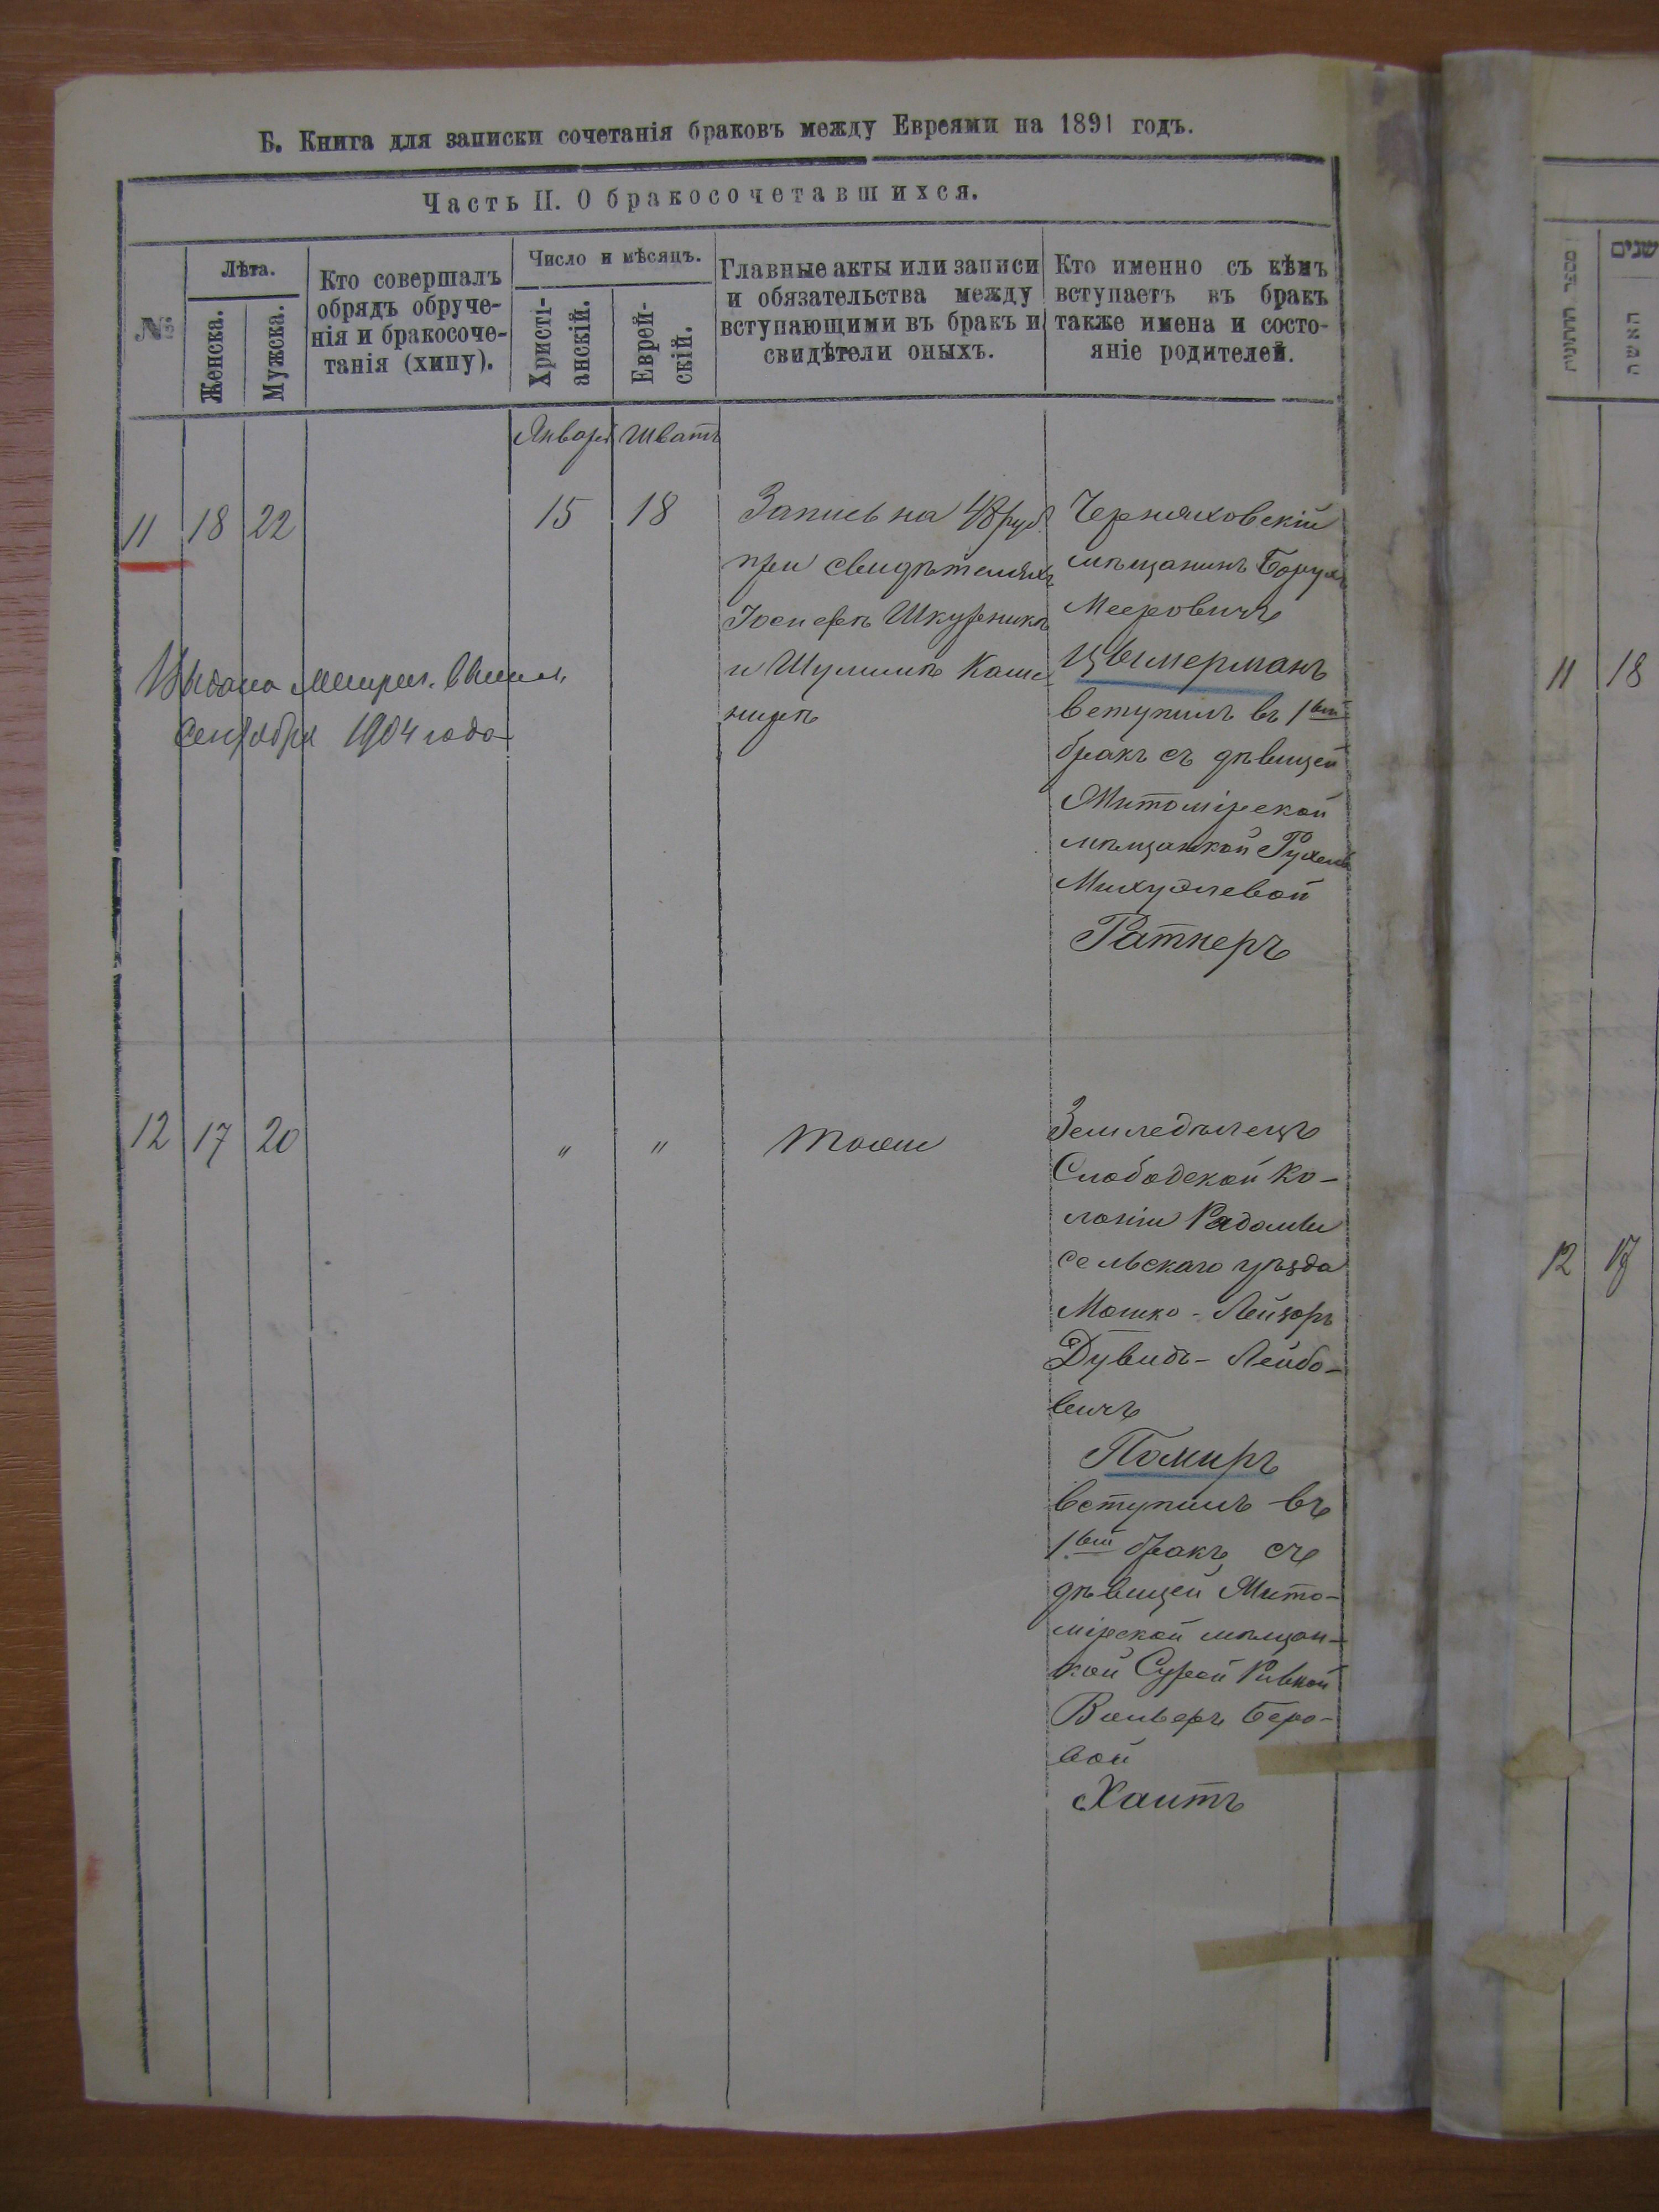 Б. Книга для записки сочетанія браковъ между Евреями на 1891 годъ.
Часть II. О бракосочетавшихся.
№
Лѣта.
Женска.
Мужска.
Кто совершалъ
обрядъ обруче-
нія и бракосоче-
танія (хипу).
Число и мѣсяцъ.
Христі-
анскій.
Еврей-
скій.
Главные акты или записи
и обязательства между
вступающими въ бракъ и
свидѣтели оныхъ.
Кто именно съ кѣмъ
вступаетъ въ бракъ
также имена и состо-
яніе родителей.
Января Шватъ
11 18 22
15 18
Запись на 48 руб.
при свидѣтеляхъ
Іосифѣ Шкурникѣ
и Шулимѣ
Черняховскій
мѣщанинъ Борухъ
Мееровичъ
Цымерманъ
вступилъ въ 1вый
бракъ съ дѣвицей
Житомірской
мѣщанкой Рухлей
Михулевой
Ратнеръ
Выдана
Сентября 1904 года
12 17 20
" "
тоже
Земледѣлецъ
Слободской Ко-
лоніи Радомы
сельскаго уѣзда
Мошко-Лейзоръ
Дувидъ-Лейбо-
вичъ
Помиръ
вступилъ въ
1вый бракъ съ
дѣвицей Жито-
мірской мѣщан-
кой Сурой Ривкой
Вольверъ Беро-
вой
Хаитъ
מספר החתונות
שנים
האשה
11 18
12 17